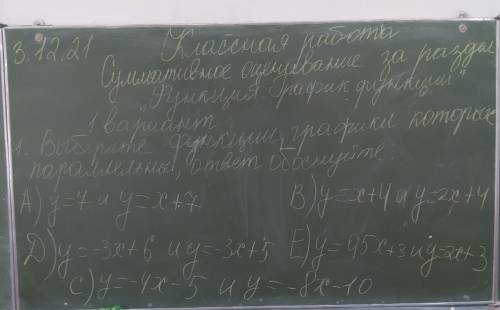 3.12.21 Классная работа
Суммативное оценивание за раздел
"Функция График функции"
1 вариант
1. Выберите функции, графики которых
параллельны, ответ обоснуйте.
А) y=7 и y=x+7 В) y=x+4 и y=2x+4
Д) y=-3x+6 и y=-3x+5 Е) y=0,5x+3 и y=2x+3
С) y=-4x-5 и y=-8x-10